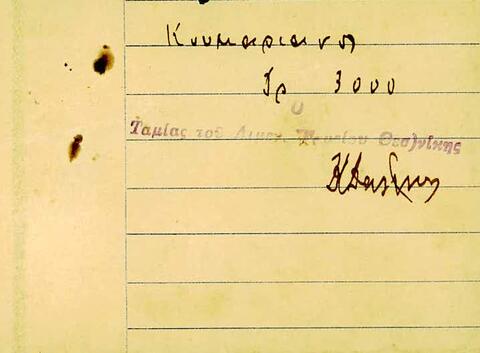 Κουμαριανο
Γρ 3000
Ο
Ταμίας τοῦ Λιμεν. Ταμείου Θεσ)νίκης